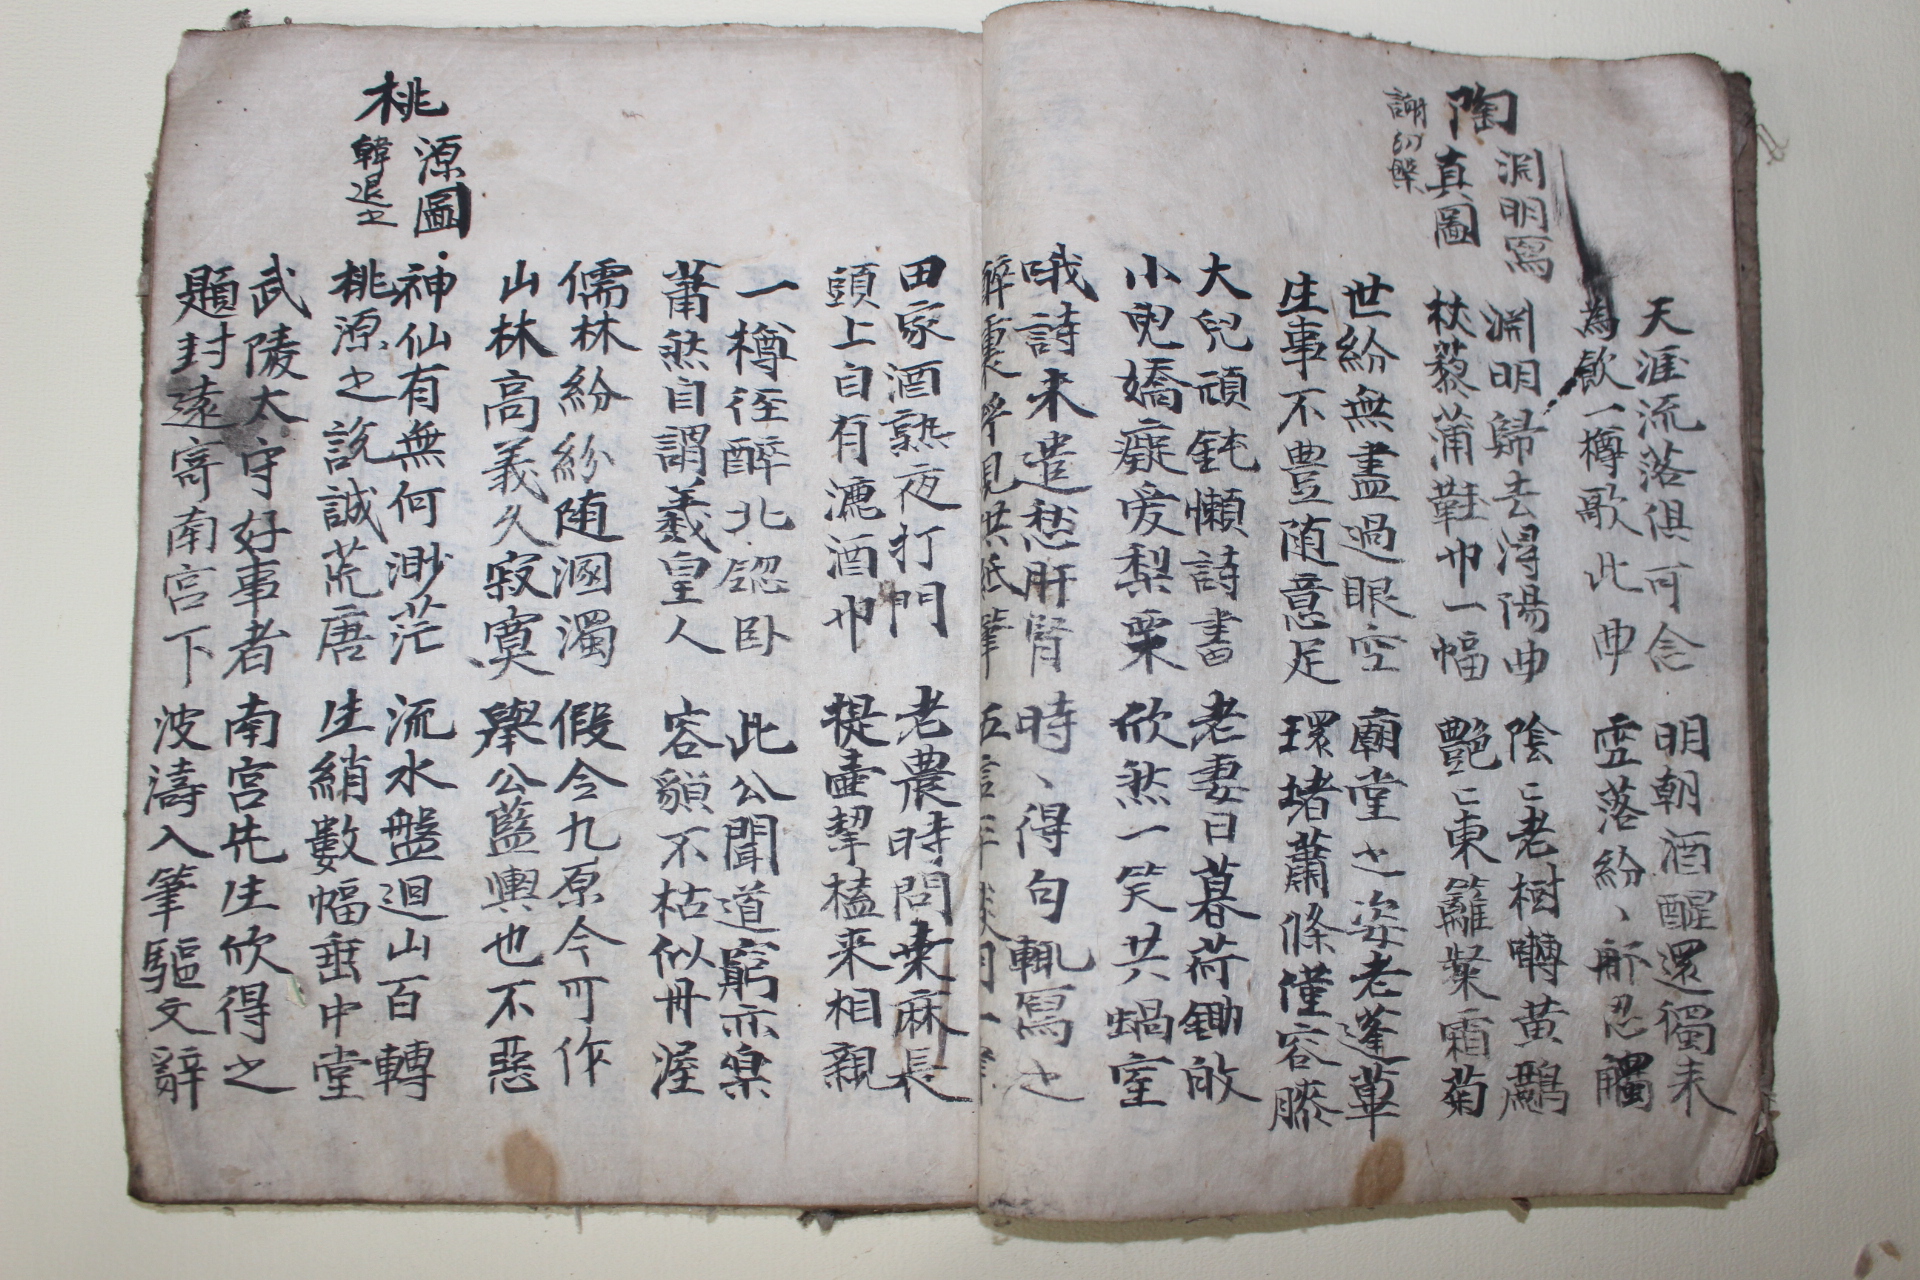 天涯流落俱可念
為飲一樽歌此曲
明朝酒醒還獨來
雪落紛、那忍觸
陶淵明寫
真圖
謝幼槃
淵明歸去潯陽曲
杖藜蒲鞋巾一幅
陰〻老樹囀黃鸝
艷〻東籬粲霜菊
世紛無盡過眼空
生事不豊随意足
廟堂之姿老蓬蓽
環堵蕭條僅容膝
大兒頑鈍懶詩書
小兒嬌癡爱梨栗
老妻日暮荷鋤皈
欣然一笑共蝸室
哦詩未遣愁肝腎
醉裏呼兒供紙筆
時、得句輒寫之
五言平淡用一律
田家酒熟夜打門
頭上自有漉酒巾
老農時問桒麻長
提壷挈榼来相親
一樽徑醉北窓卧
蕭然自謂羲皇人
此公聞道窮亦樂
容貌不枯似丹渥
儒林紛紛随溷濁
山林高義久寂寞
假令九原今可作
擧公籃輿也不惡
桃源圖
韓退之
神仙有無何渺茫
桃源之說誠荒唐
流水盤迴山百轉
生綃數幅垂中堂
武陵太守好事者
題封遠寄南宮下
南宮先生欣得之
波濤入筆驅文辭